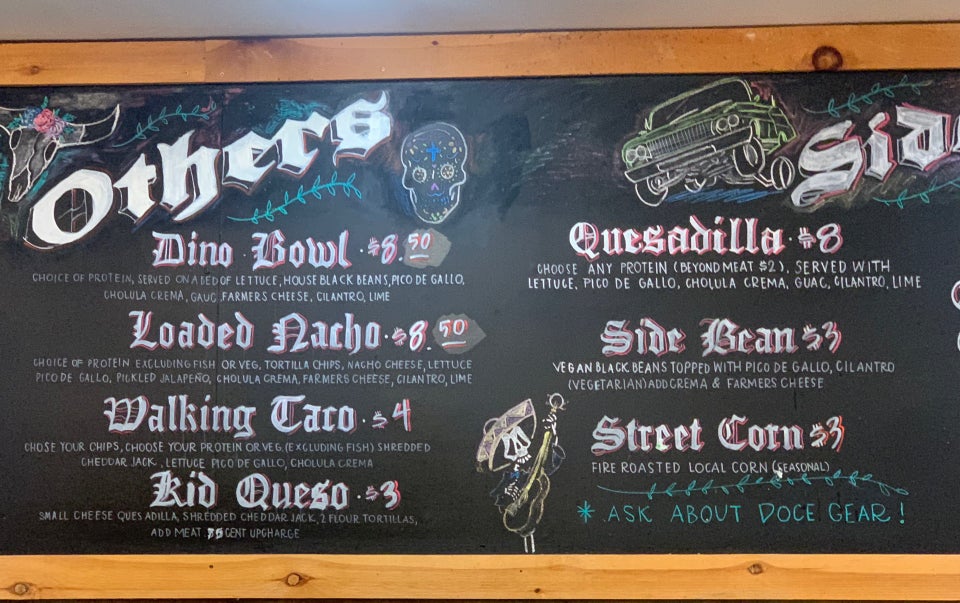 Others
Dino Bowl $8.50
CHOICE OF PROTEIN, SERVED ON A BED OF LETTUCE, HOUSE BLACK BEANS, PICO DE GALLO,
CHOLULA CREMA, GAUC, FARMERS CHEESE, CILANTRO, LIME
Loaded Nacho $8.50
CHOICE OF PROTEIN EXCLUDING FISH OR VEG, TORTILLA CHIPS, NACHO CHEESE, LETTUCE
PICO DE GALLO, PICKLED JALAPEÑO, CHOLULA CREMA, FARMERS CHEESE, CILANTRO, LIME
Walking Taco $4
CHOSE YOUR CHIPS, CHOOSE YOUR PROTEIN OR VEG, (EXCLUDING FISH) SHREDDED
CHEDDAR JACK, LETTUCE PICO DE GALLO, CHOLULA CREMA
Kid Queso $3
SMALL CHEESE QUESADILLA, SHREDDED CHEDDAR JACK, 2 FLOUR TORTILLAS,
ADD MEAT CENT UPCHARGE
Quesadilla $8
CHOOSE ANY PROTEIN (BEYOND MEAT $2), SERVED WITH
LETTUCE, PICO DE GALLO, CHOLULA CREMA, GUAC, CILANTRO, LIME
Side Bean $3
VEGAN BLACK BEANS TOPPED WITH PICO DE GALLO, CILANTRO
(VEGETARIAN) ADD CREMA & FARMERS CHEESE
Street Corn $3
FIRE ROASTED LOCAL CORN (SEASONAL)
* ASK ABOUT DOCE GEAR!